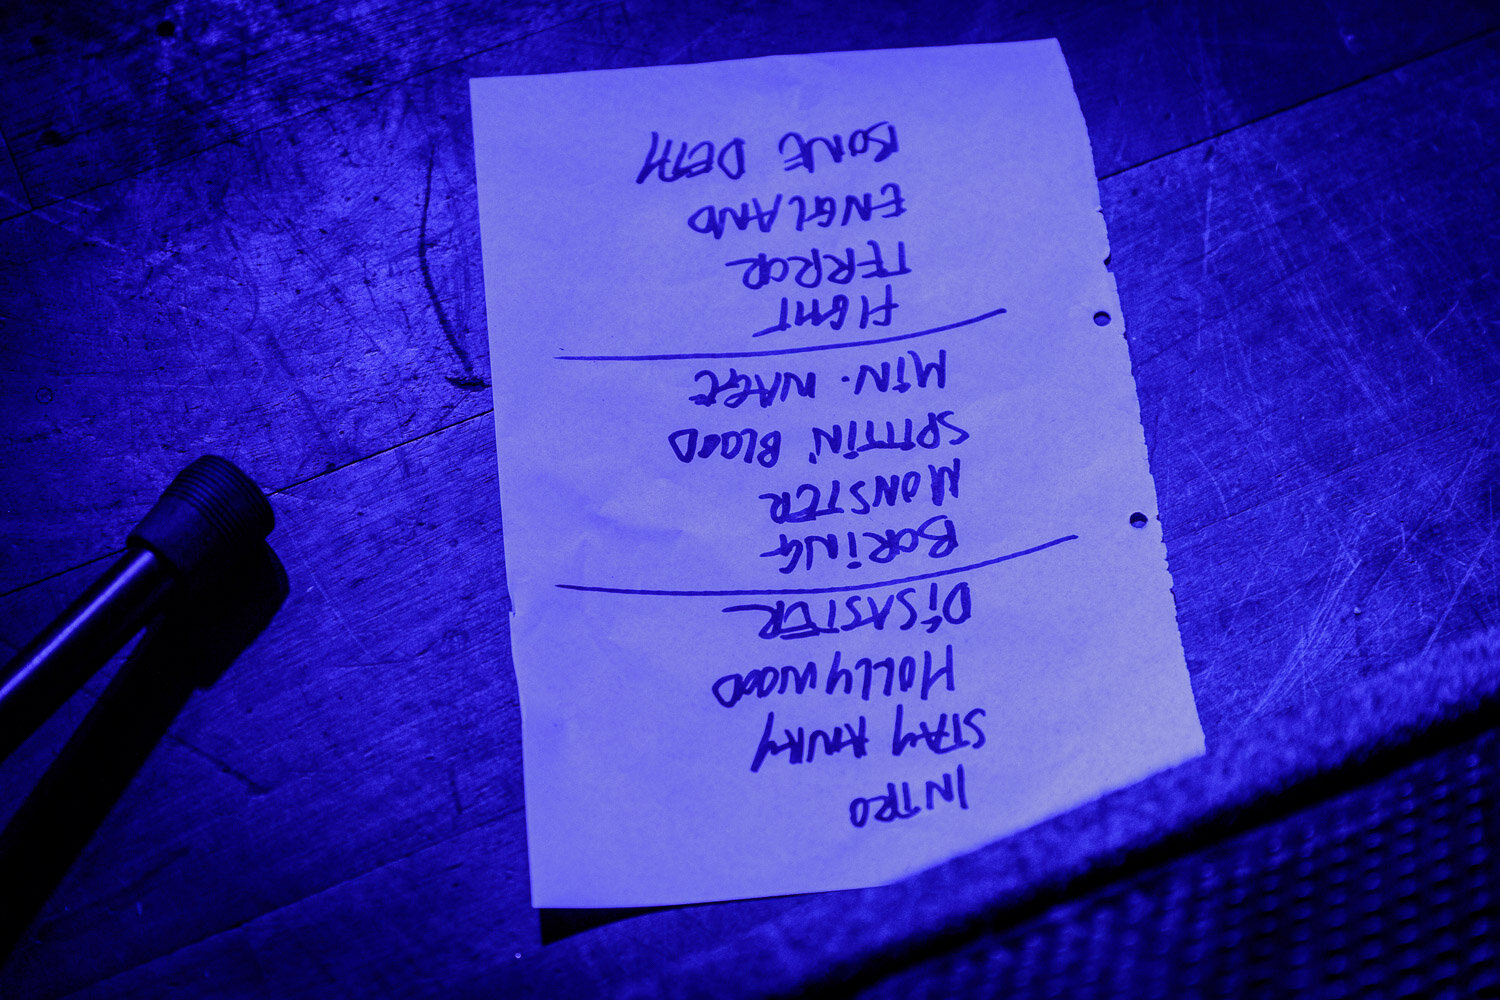 INTRO
STAY AWAY
HOLLYWOOD
DiSASTER
BORiNG
MONSTER
SPITTIN' BLOOD
MIN. WAGE
FIGHT
TERROR
ENGLAND
BONE DETH